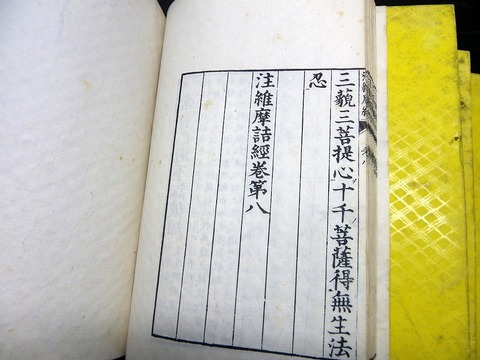 三藐三菩提心十千菩薩得無生法
忍
注維摩詰經卷第八